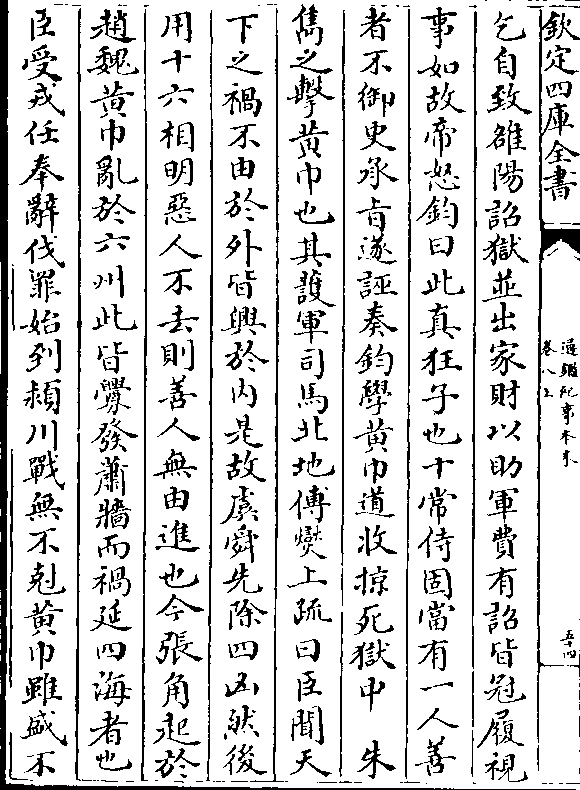 欽定四庫全書
通鑑紀事本末
卷八上
五十四
乞自致雒陽詔獄並出家財以助軍費有詔皆冠履視
事如故帝怒鈞曰此真狂子也十常侍固當有一人善
者不御史承旨遂誣奏鈞學黃巾道收掠死獄中　朱
雋之擊黃巾也其護軍司馬北地傅燮上疏曰臣聞天
下之禍不由於外皆興於内是故虞舜先除四凶然後
用十六相明惡人不去則善人無由進也今張角起於
趙魏黃巾亂於六州此皆釁發蕭牆而禍延四海者也
臣受戎任奉辭伐罪始到潁川戰無不剋黃巾雖盛不